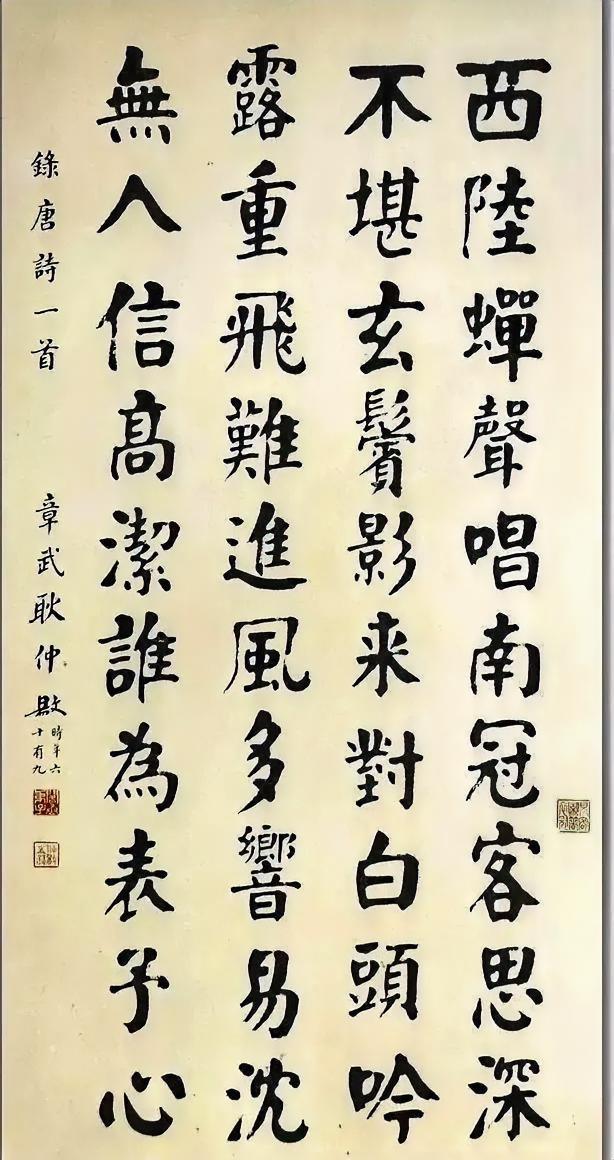 西陸蟬聲唱南冠客思深
不堪玄鬢影来對白頭吟
露重飛難進風多響易沈
無人信高潔誰為表予心
錄唐詩一首 章武耿仲敭
時年六
十有九